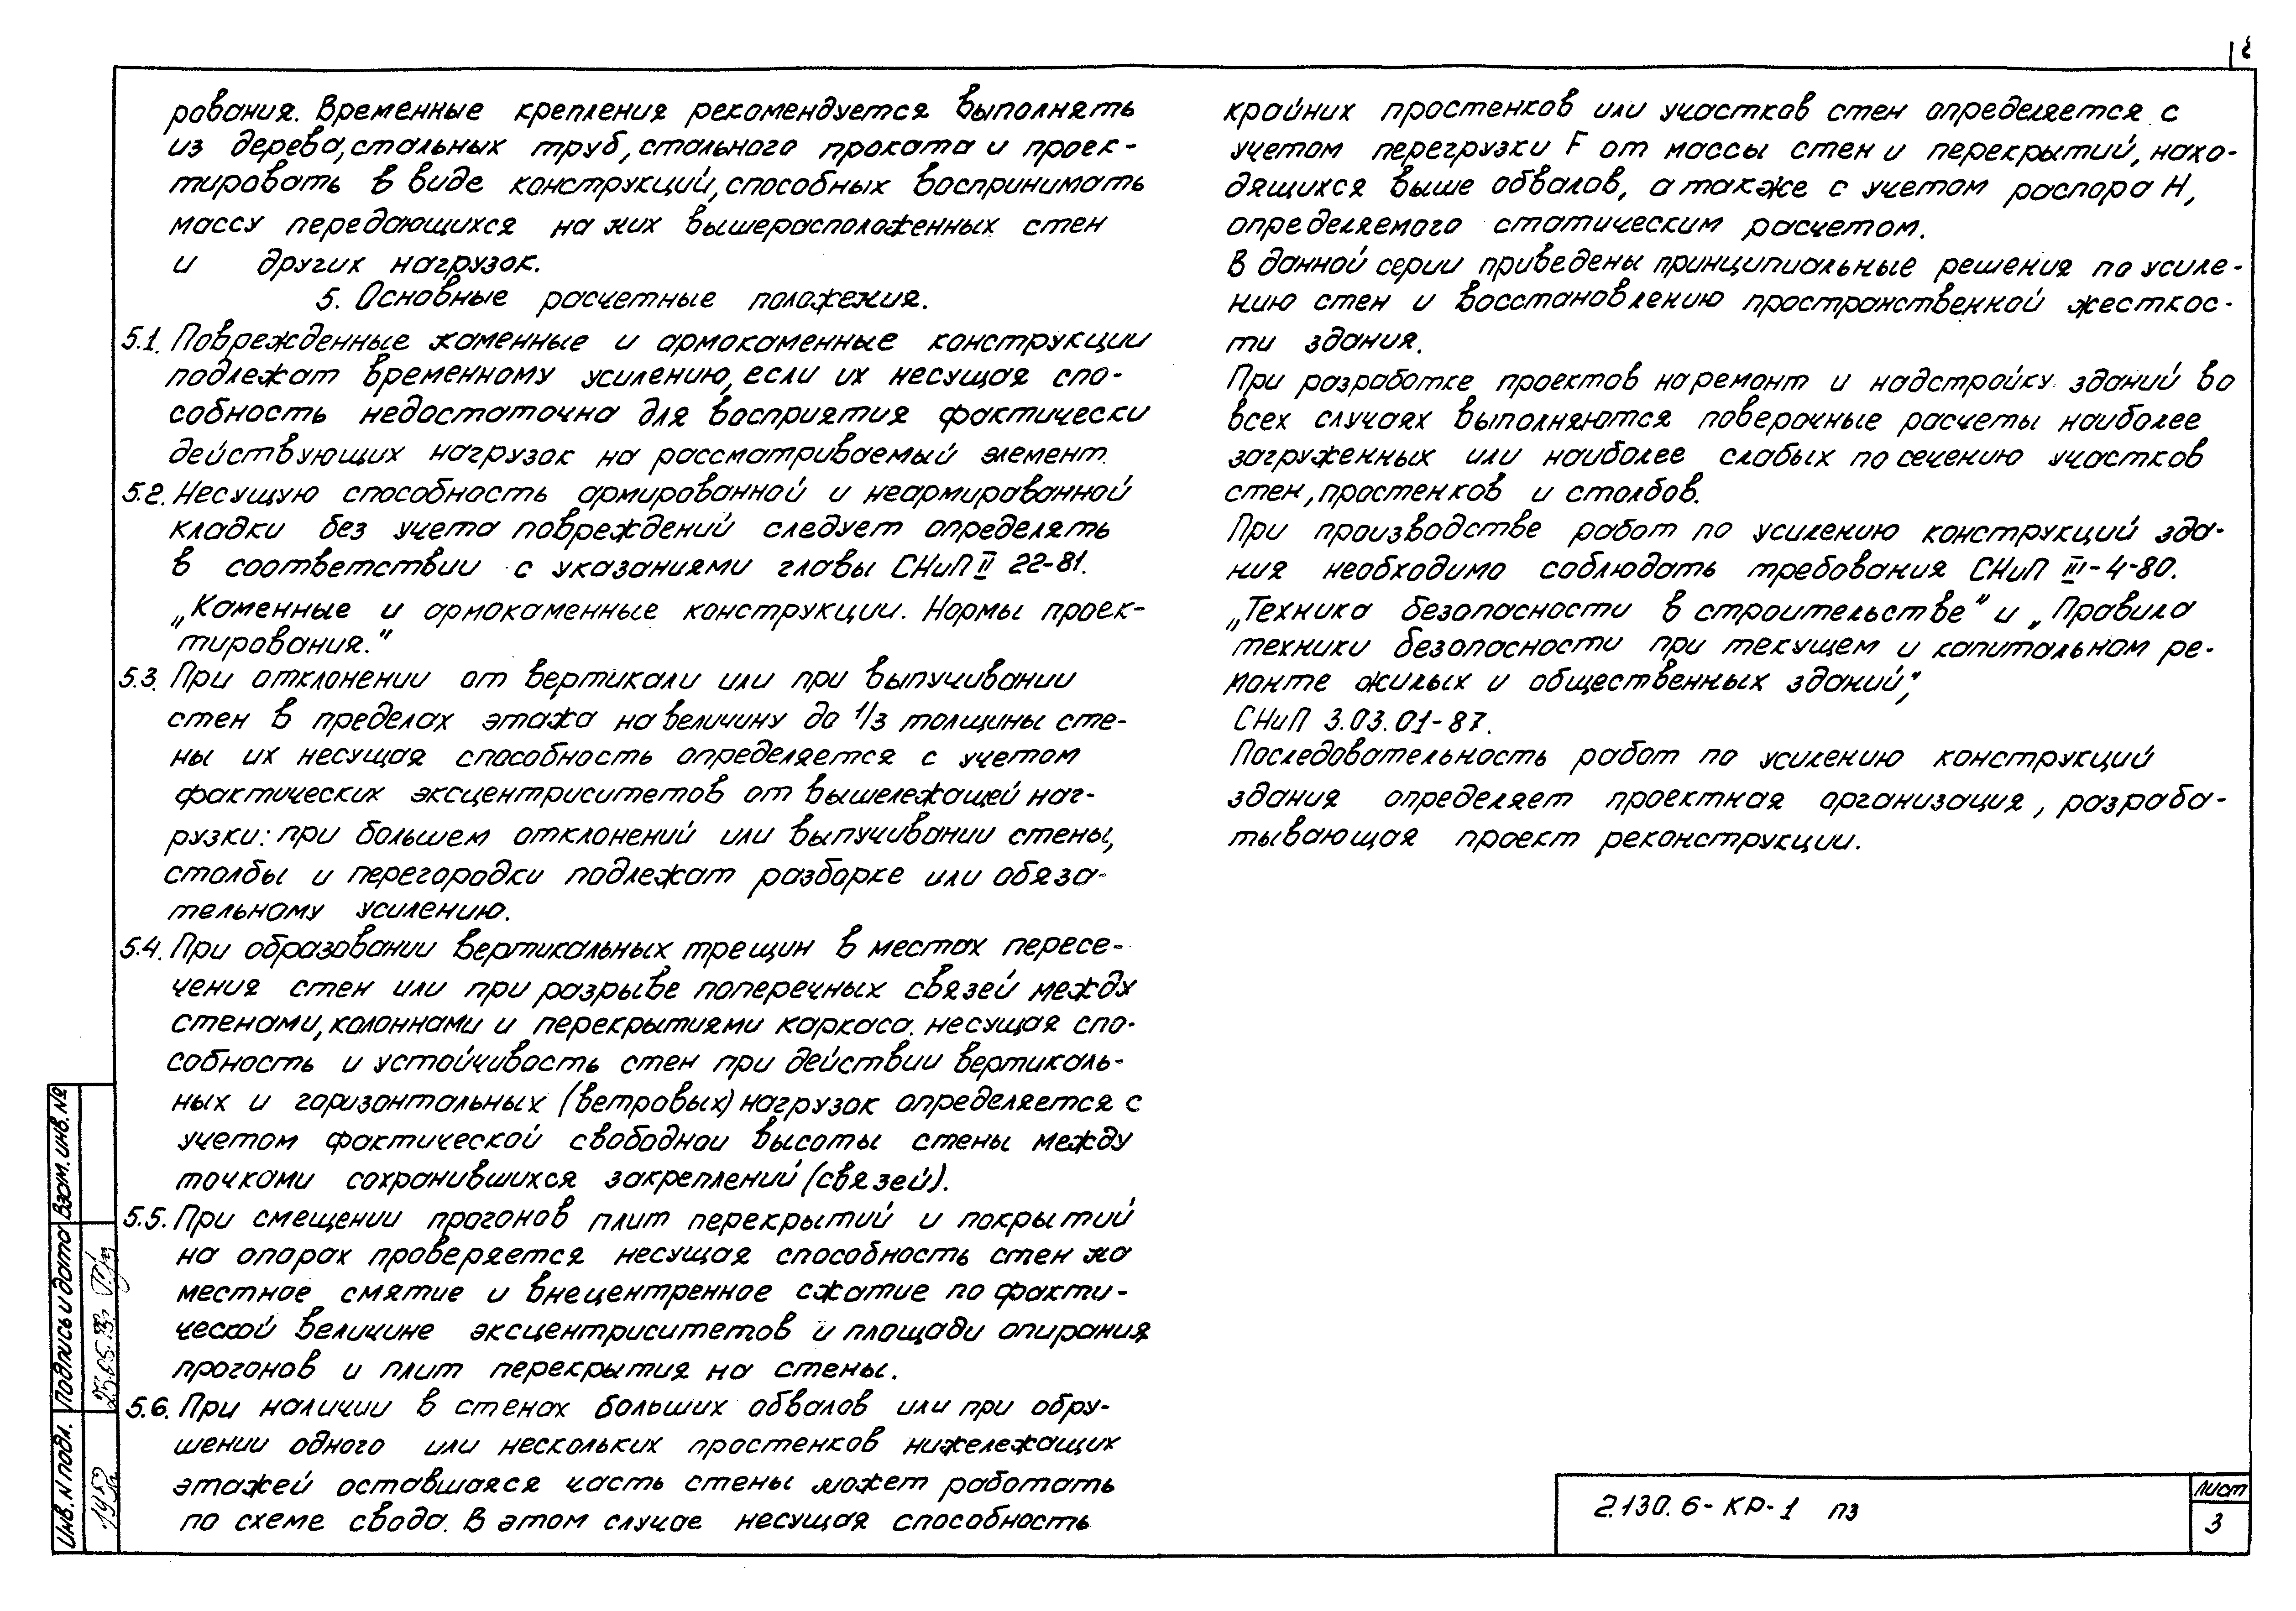 рования. Временные крепления рекомендуется выполнять
из дерева, стальных труб, стального проката и проек-
тировать в виде конструкций, способных воспринимать
массу передающихся на них вышерасположенных стен
и других нагрузок.
5. Основные расчетные положения.
5.1. Поврежденные каменные и армокаменные конструкции
подлежат временному усилению, если их несущая спо-
собность недостаточна для восприятия фактически
действующих нагрузок на рассматриваемый элемент.
5.2. Несущую способность армированной и неармированной
кладки без учета повреждений следует определять
в соответствии с указаниями главы СНиП II 22-81.
„Каменные и армокаменные конструкции. Нормы проек-
тирования."
5.3. При отклонении от вертикали или при выпучивании
стен в пределах этажа на величину до 1/3 толщины сте-
ны их несущая способность определяется с учетом
фактических эксцентриситетов от вышележащей наг-
рузки: при большем отклонений или выпучивании стены,
столбы и перегородки подлежат разборке или обяза-
тельному усилению.
5.4. При образовании вертикальных трещин в местах пересе-
чения стен или при разрыве поперечных связей между
стенами, колоннами и перекрытиями каркаса. несущая спо-
собность и устойчивость стен при действии вертикаль-
ных и горизонтальных (ветровых) нагрузок определяется с
учетом фактической свободнои высоты стены между
точками сохранившихся закреплений (связей).
5.5. При смещении прогонов плит перекрытий и покрытий
на опорах проверяется несущая способность стен на
местное смятие и внецентренное сжатие по факти-
ческой величине эксцентриситетов и площади опирания
прогонов и плит перекрытия на стены.
5.6. При наличии в стенах больших обвалов или при обру-
шении одного или нескольких простенков нижележащих
этажей оставшаяся часть стены может работать
по схеме свода. В этом случае несущая способность
крайних простенков или участков стен определяется с
учетом перегрузки F от массы стен и перекрытий, нахо-
дящихся выше обвалов, а также с учетом распора Н,
определяемого статическим расчетом.
В данной серии приведены принципиальные решения по усиле-
нию стен и восстановлению пространственной жесткос-
ти здания.
При разработке проектов на ремонт и надстройку зданий во
всех случаях выполняются поверочные расчеты наиболее
загруженных или наиболее слабых по сечению участков
стен, простенков и столбов.
При производстве работ по усилению конструкций зда-
ния необходимо соблюдать требования СНиП III-4-80.
„Техника безопасности в строительстве" и „Правила
техники безопасности при текущем и капитальном ре-
монте жилых и общественных зданий",
СНиП 3.03.01-87.
Последовательность работ по усилению конструкций
здания определяет проектная организация, разраба-
тывающая проект реконструкции.
Взам. инв. №
Подпись и дата
23.05.93
Инв. N подл.
2.130.6-КР-1 ПЗ
лист
3